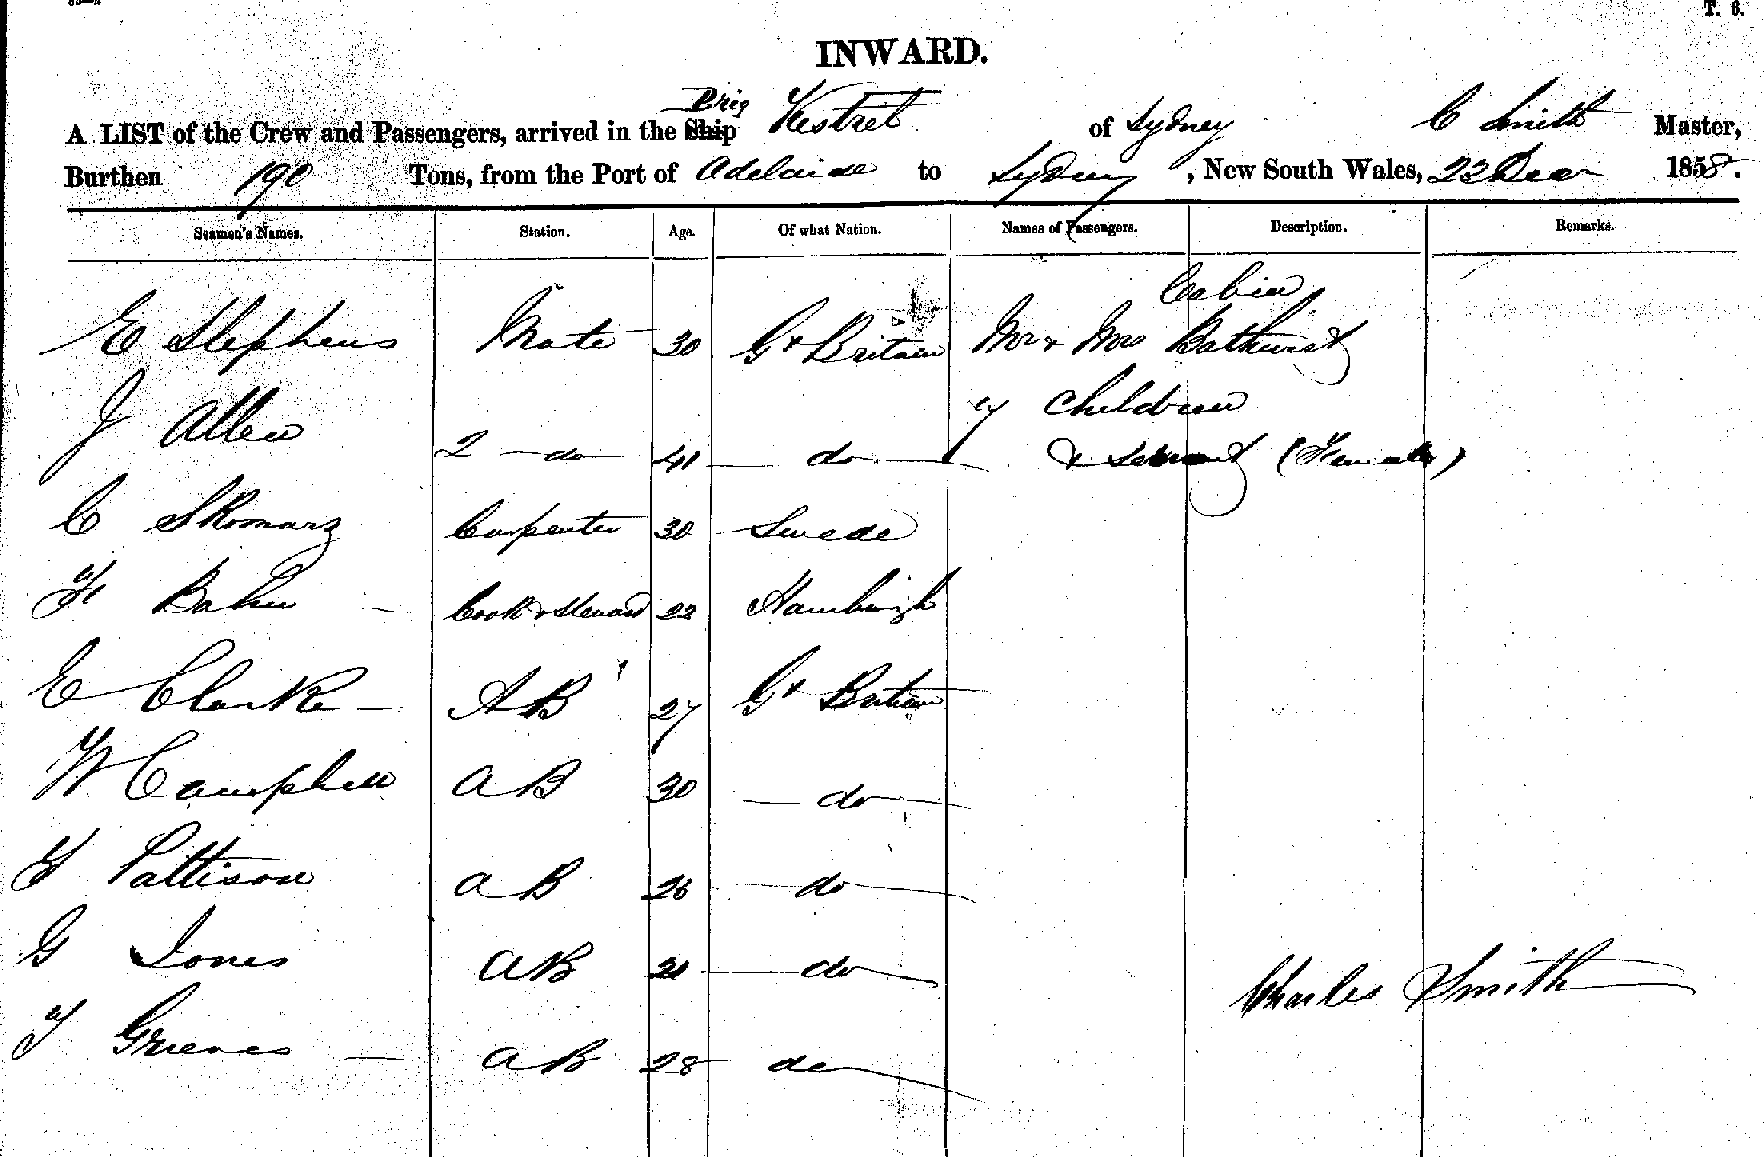 T. 6.
INWARD.
A LIST of the Crew and Passengers, arrived in the Ship Brig Kestrel of Sydney C Smith Master,
Burthen 190 Tons, from the Port of Adelaide to Sydney, New South Wales, 22 Decr 1858.
Seamen's Names. Station. Age. Of what Nation. Names of Passengers. Description. Remarks.
Cabin
E Stephens Mate 30 Gt Britain Mr & Mrs Bathurst
J Allen 2 do 41 do
7 Children
& Servant (Female)
C Skomarz Carpenter 30 Swede
F Baker Cook & Steward 22 Hamburgh
E Clarke AB 27 Gt Britain
W Campbell AB 30 do
F Pattison AB 26 do
G Jones AB 21 do
Charles Smith
T Grieves AB 28 do